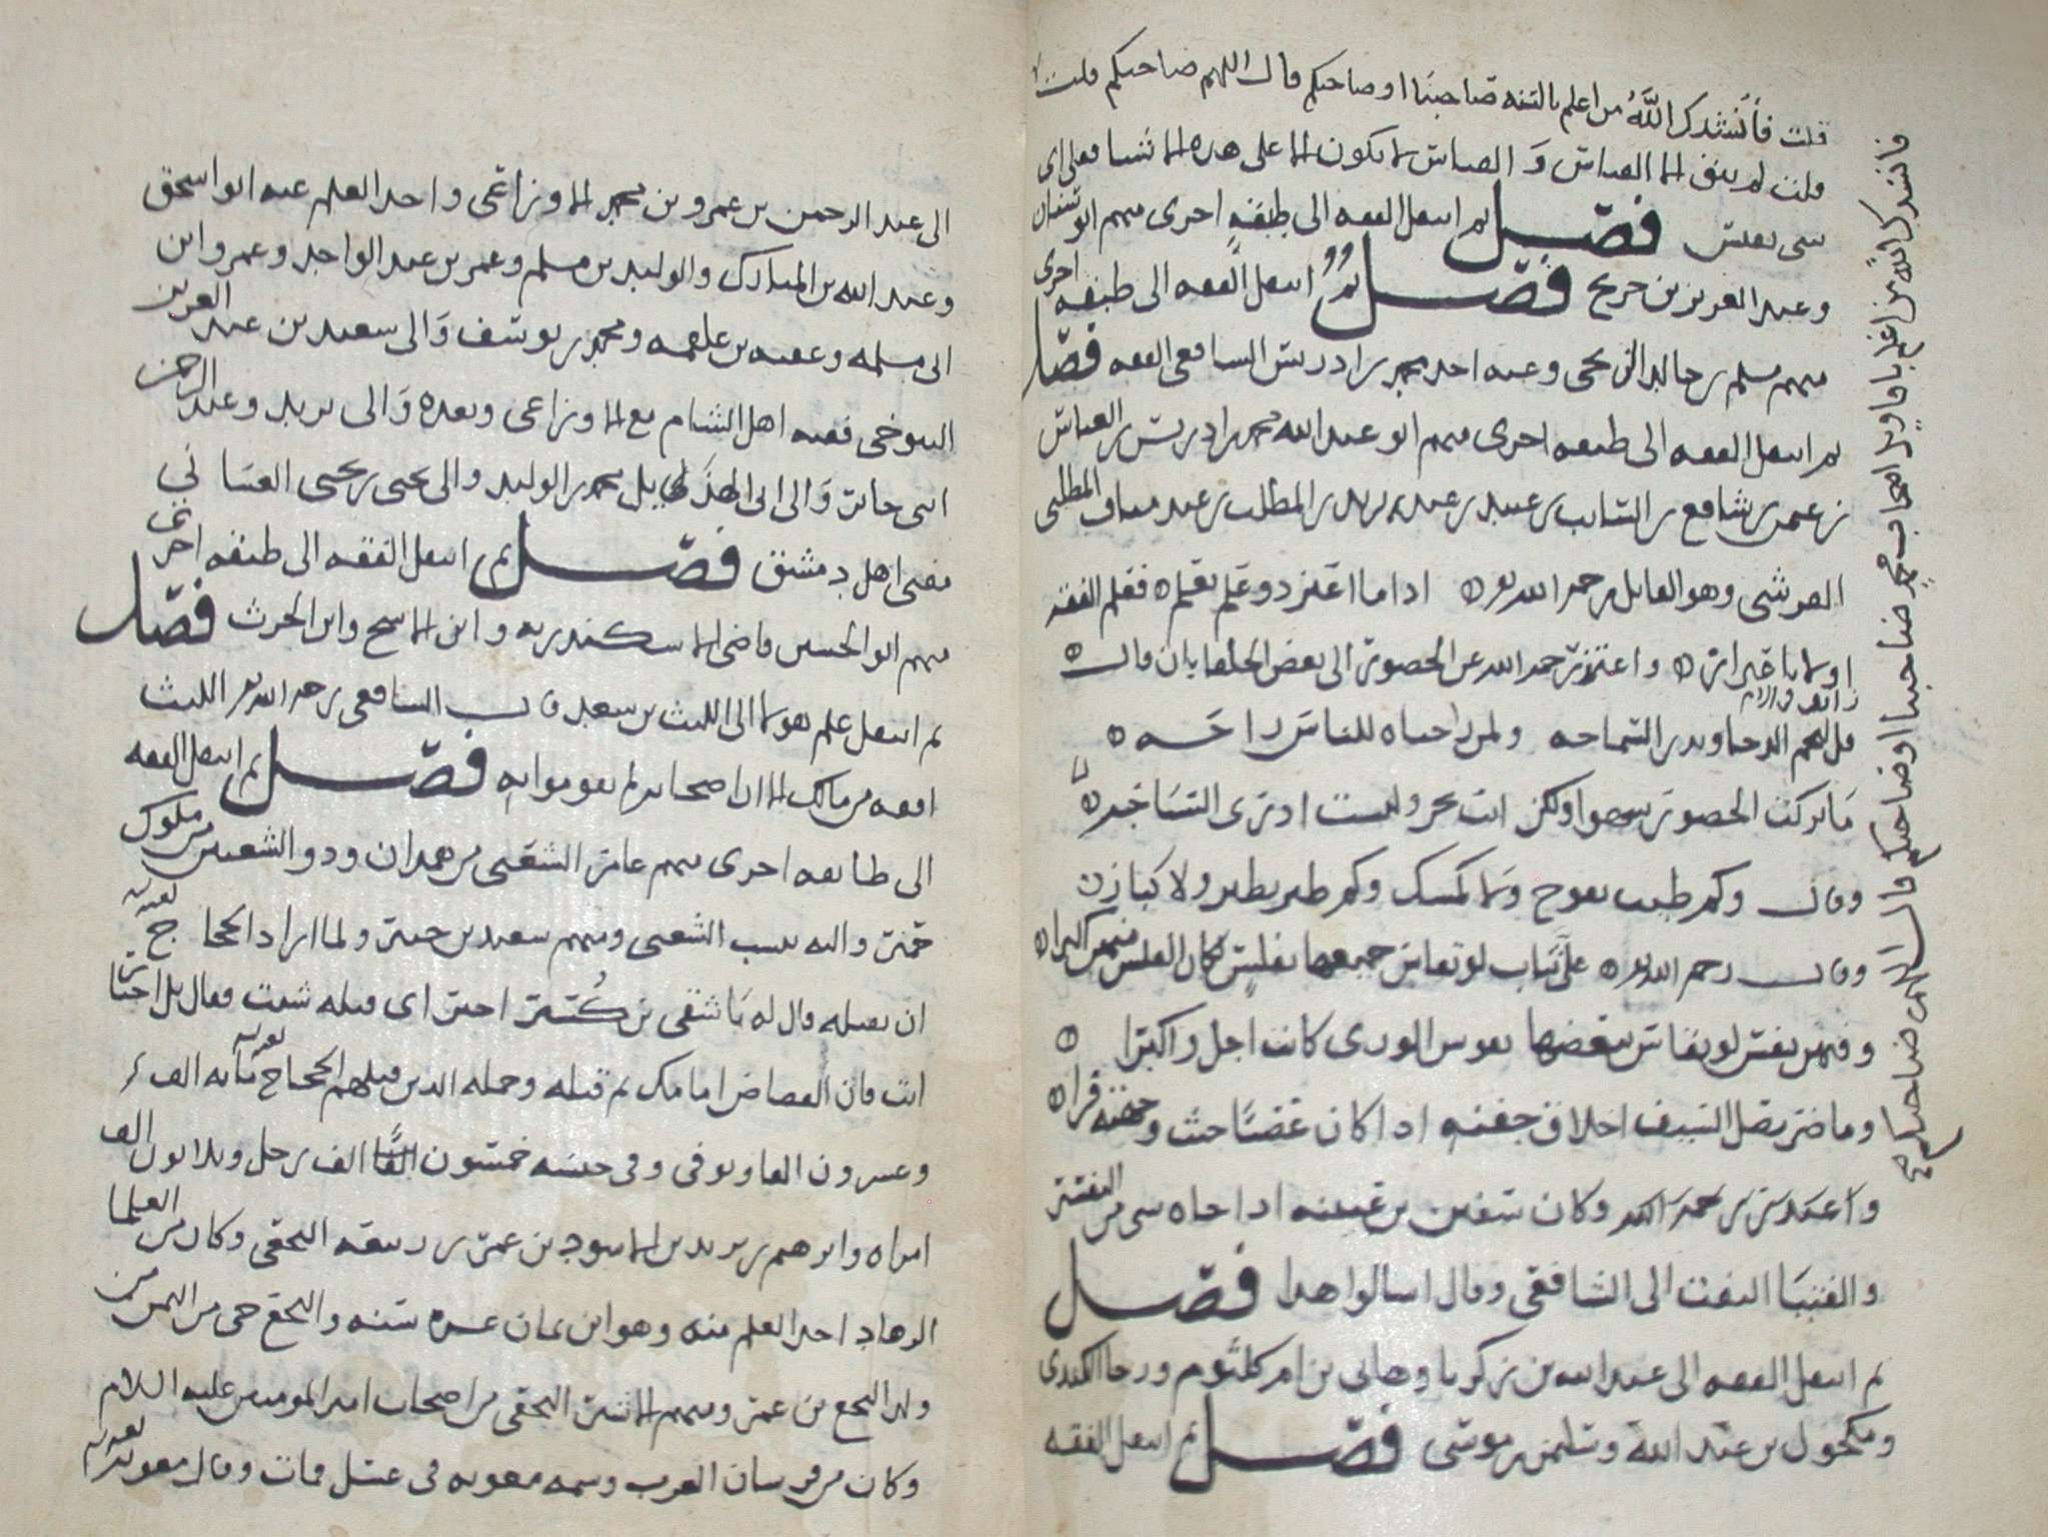 قلت فأنشدك الله من اعلم بالسنه صاحبنا او صاحبكم قال اللهم صاحبكم قلت
قلت لم يبق الا القياس و القياس لا يكون الا على هذه الاشيا فعلى اى
شى نقيس فصل ثم انتقل الفقه الى طبقة اخرى منهم ابو سفيان
وعبد العزيز بن جريج فصل ثم انتقل الفقه الى طبقه اخرى
منهم مسلم بن خالد الزنجى وعنه اخذ محمد بن ادريس الشافعى الفقه فصل
ثم انتقل الفقه الى طبقه اخرى منهم ابو عبد الله محمد بن ادريس بن العباس
بن عمر بن شافع بن السايب بن عبيد بن عبد يزيد بن المطلب بن عبد مناف المطلبى
القرشى وهو القايل رحمه الله اذا ما اعتز ذو علم بعلم فعلم الفقه
اولى باعتزاز واعتذر رحمه الله عن الحضور الى بعض الخلفا بان قال
قل لفتى الدجا وبدر السماحه ولمن راحتاه للناس راحه
ما تركت الحضور سهوا ولكن انت بحر ولست ادرى السباحه
وقال وكم طيب يفوح ولا كمسك وكم طير يطير ولا كبازى
وقال رحمه الله على ثياب لو تقاس جميعها بفلس لكان الفلس منهن اكثرا
وفيهن نفس لو تقاس ببعضها نفوس الورى كانت اجل واكبرا
وما ضر نصل السيف اخلاق جفنه اذا كان عضبا حيث وجهته فرا
وكان سفين بن عيينه اذا جاه شى من التفسير
والفتيا التفت الى الشافعى وقال اسالوا هذا فصل
ثم انتقل الفقه الى عبد الله بن زكريا وهانى بن ام كلثوم ورجا الكندى
ومكحول بن عبد الله وسليمن بن موسى فصل ثم انتقل الفقه
فانشدك الله من اعلم باقاويل اصحاب محمد صاحبنا او صاحبكم قال اللهم صاحبكم
الى عبد الرحمن بن عمرو بن محمد الاوزاعى واخذ العلم عنه ابو اسحق
وعبد الله بن المبارك والوليد بن مسلم وعمر بن عبد الواحد وعمرو ابن
ابى مسلمه وعقبه بن علقمه ومحمد بن يوسف والى سعيد بن عبد العزيز
التنوخى فقيه اهل الشام مع الاوزاعى وبعده والى يزيد وعبد الرحمن
ابنى جابر والى ابى الهذيل محمد بن الوليد والى يحيى بن يحيى الغسانى
مفتى اهل دمشق فصل ثم انتقل الفقه الى طبقه اخرى
منهم ابو الحسين قاضى الاسكندريه وابن الاشج وابن الحرث فصل
ثم انتقل علم هولا الى الليث بن سعد قال الشافعى رحمه الله الليث
افقه من مالك الا ان اصحابه لم يقوموا به فصل ثم انتقل الفقه
الى طايفه اخرى منهم عامر الشعبى من همدان وذو الشعبين من ملوك
حمير واليه ينسب الشعبى ومنهم سعيد بن جبير ولما اراد الحجاج
ان يقتله قال له يا شقى بن كُسير اختر اى قتله شيت فقال بل اختر
انت فان القصاص امامك ثم قتله وجمله الذين قتلهم الحجاج مايه الف
وعشرون الفا وتوفى وفى حبسه خمسون الفا الف رجل وثلاثون الف
امراه وابرهيم بن يزيد بن الاسود بن عمر بن ربيعه النخعى وكان من العلما
الزهاد اخذ العلم منه وهو ابن ثمان عشره سنه والنخع حى من اليمن من
ولد النخع بن عمر ومنهم الاشتر النخعى من اصحاب امير المومنين عليه السلام
وكان من فرسان العرب وسمه معويه فى عسل فمات وقال معويه